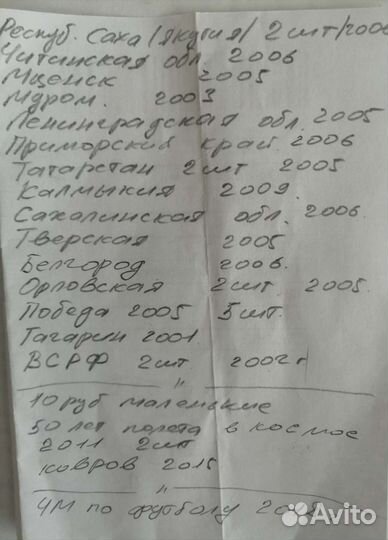 Респуб. Саха /Якутия/ 2шт/2006
Читинская обл. 2006
Мценск 2005
Муром. 2003
Ленинградская обл. 2005
Приморский край. 2006
Татарстан 2шт 2005
Калмыкия 2009.
Сахалинская обл. 2006.
Тверская 2005
Белгород 2006.
Орловская 2шт. 2005.
Победа 2005 5шт.
Гагарин 2001
ВСРФ 2шт. 2002г
"
10 руб маленькие
50 лет полета в космос
2011 2шт
Ковров 2015
"
ЧМ по футболу
Avito